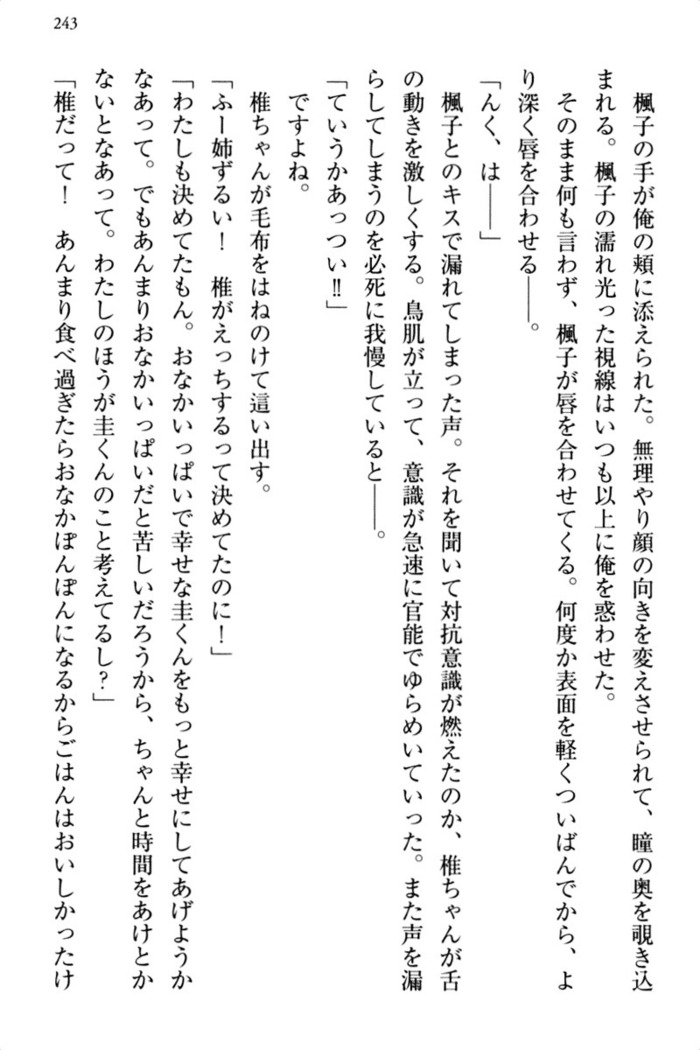 243
楓子の手が俺の頬に添えられた。無理やり顔の向きを変えさせられて、瞳の奥を覗き込
まれる。楓子の濡れ光った視線はいつも以上に俺を惑わせた。
そのまま何も言わず、楓子が唇を合わせてくる。何度か表面を軽くついばんでから、よ
り深く唇を合わせる――。
「んく、は――」
楓子とのキスで漏れてしまった声。それを聞いて対抗意識が燃えたのか、椎ちゃんが舌
の動きを激しくする。鳥肌が立って、意識が急速に官能でゆらめいていった。また声を漏
らしてしまうのを必死に我慢していると――。
「ていうかあっつい‼」
ですよね。
椎ちゃんが毛布をはねのけて這い出す。
「ふー姉ずるい！　椎がえっちするって決めてたのに！」
「わたしも決めてたもん。おなかいっぱいで幸せな圭くんをもっと幸せにしてあげようか
なあって。でもあんまりおなかいっぱいだと苦しいだろうから、ちゃんと時間をあけとか
ないとなあって。わたしのほうが圭くんのこと考えてるし？」
「椎だって！　あんまり食べ過ぎたらおなかぽんぽんになるからごはんはおいしかったけ